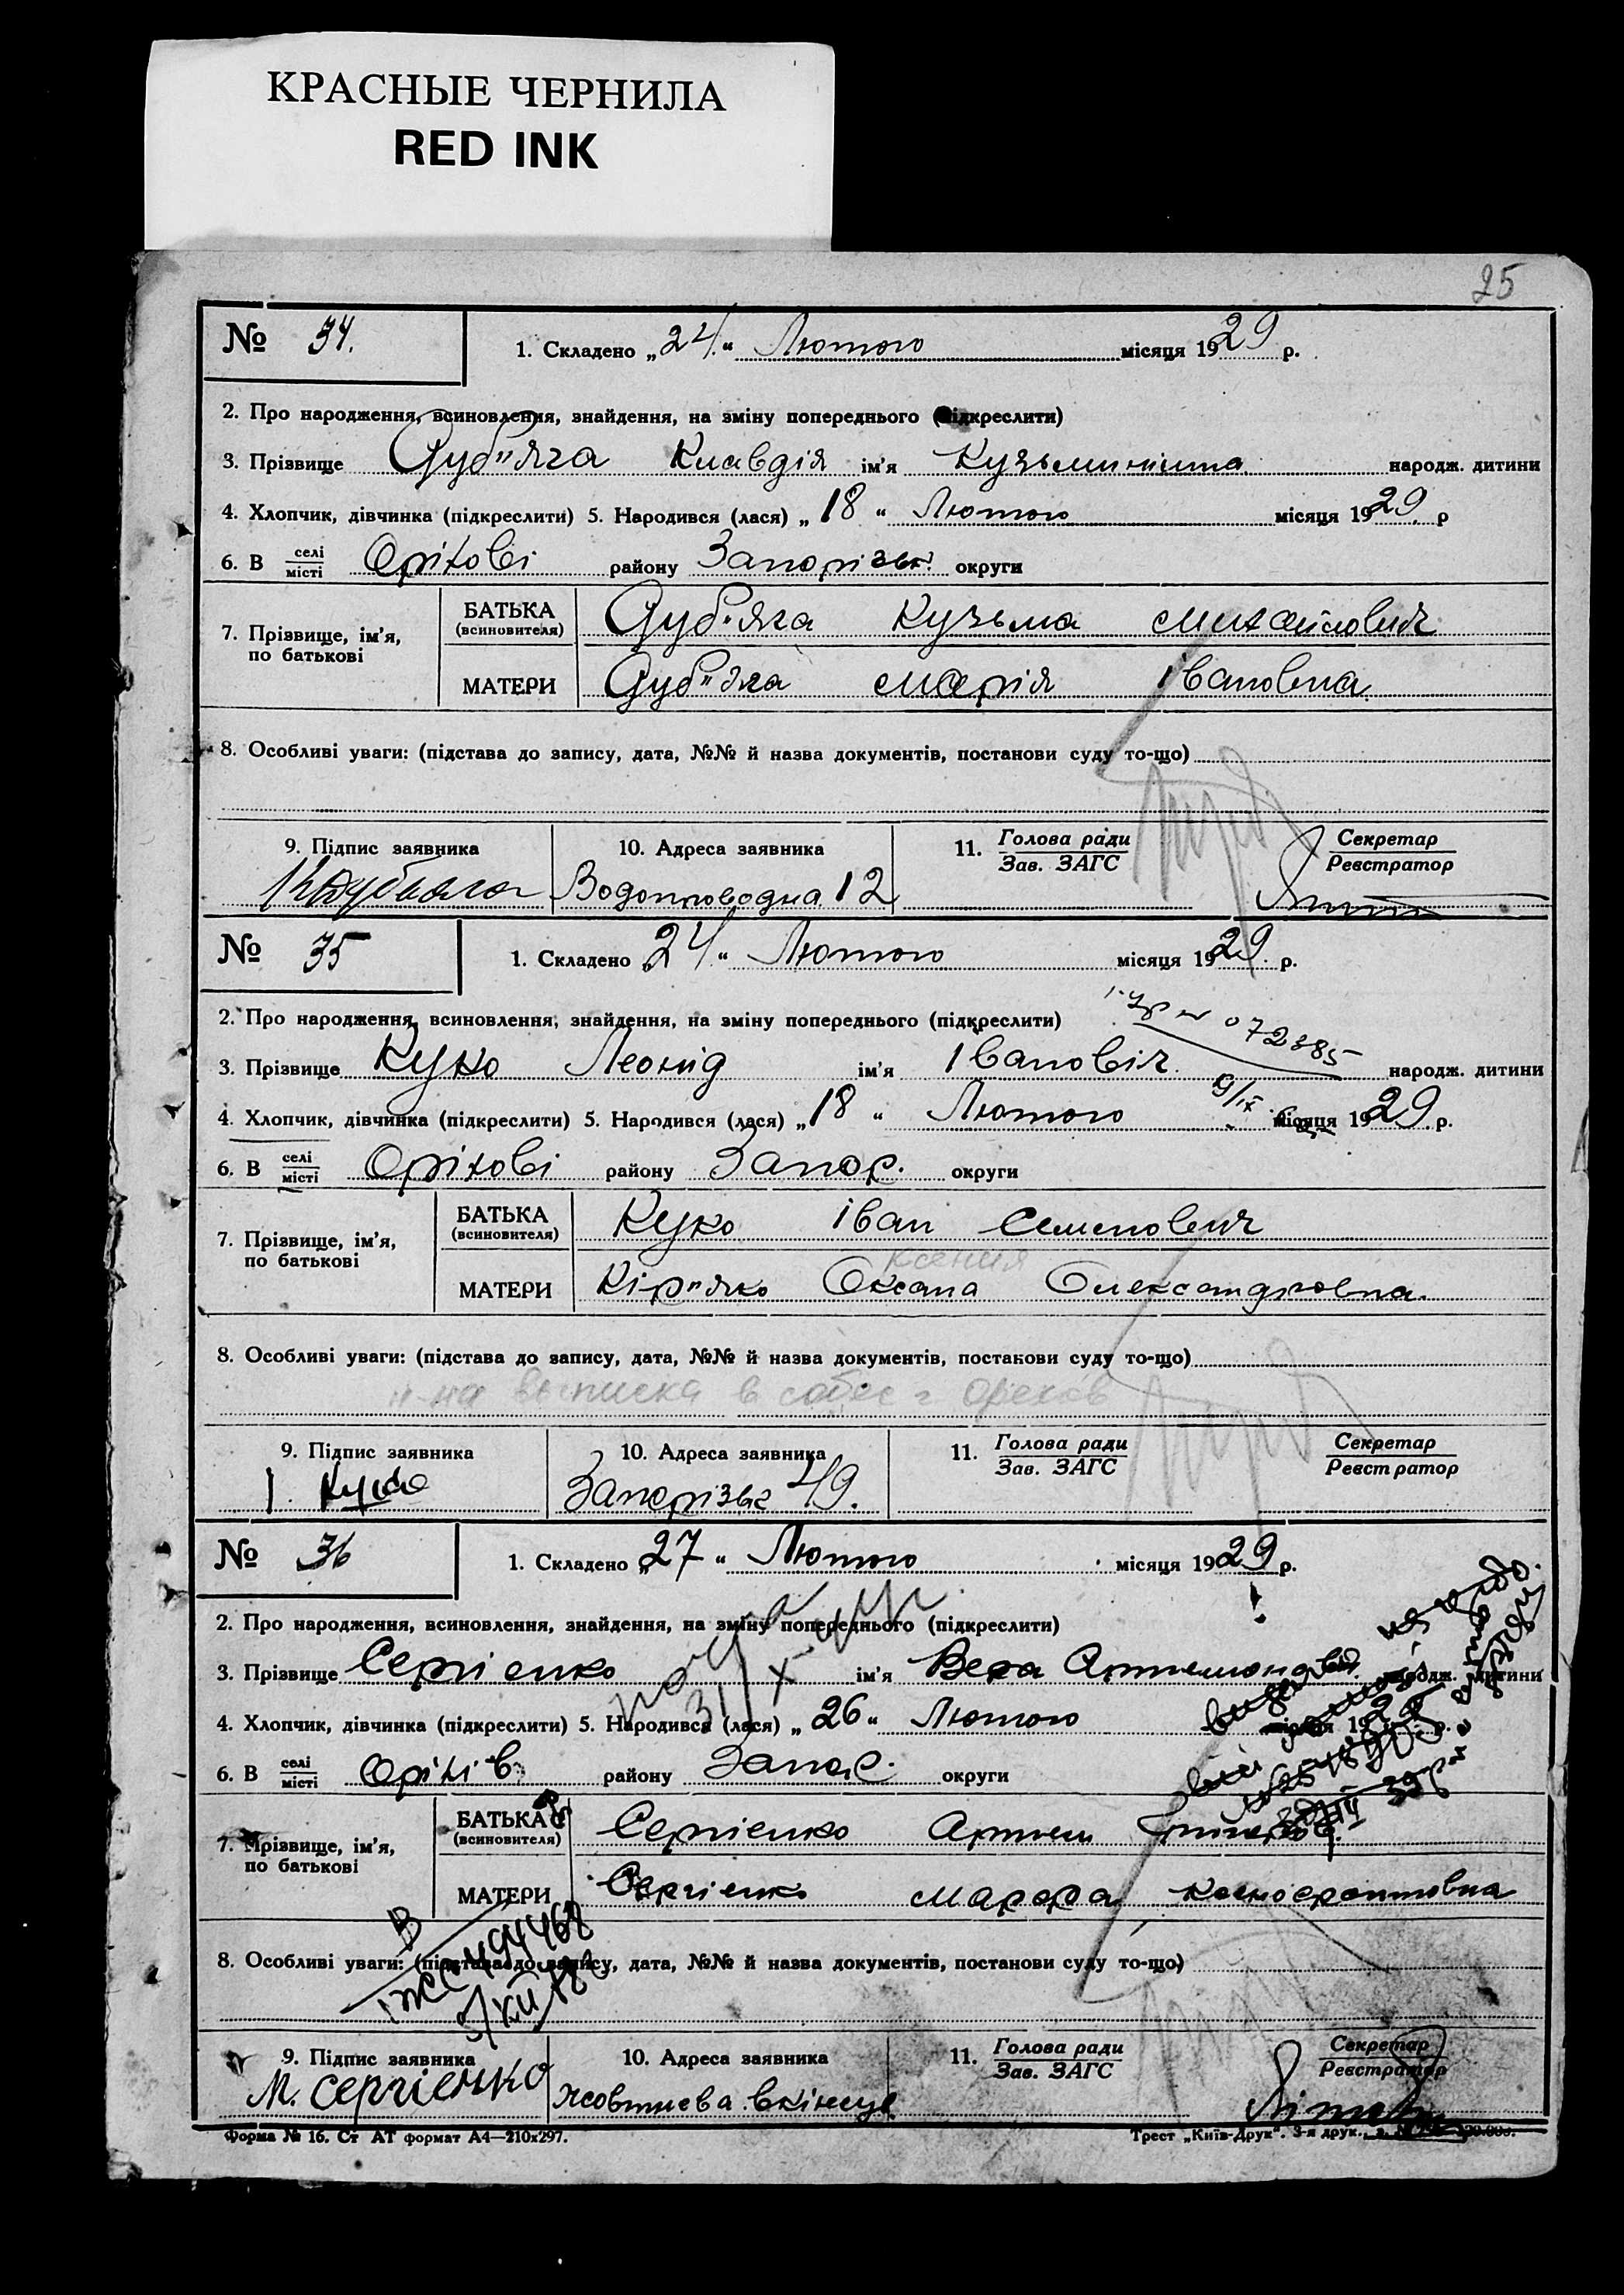 КРАСНЫЕ ЧЕРНИЛА
RED INK
25
№ 34. 1. Складено „24.“ Лютого місяця 1929 р.
2. Про народження, всиновлення, знайдення, на зміну попереднього (підкреслити)
3. Прізвище Дуб"яга Клавдія ім'я Кузьминішна народж. дитини
4. Хлопчик, дівчинка (підкреслити) 5. Народився (лася) „18“ Лютого місяця 1929 р
6. В селі місті Оріхові району Запорізьк. округи
7. Прізвище, ім'я, по батькові
БАТЬКА (всиновителя) Дуб"яга Кузьма Михайлович
МАТЕРИ Дуб"яга Марія Івановна
8. Особливі уваги: (підстава до запису, дата, №№ й назва документів, постанови суду то-що)
9. Підпис заявника 10. Адреса заявника 11. Голова ради Зав. ЗАГС Секретар Реєстратор
Водопроводна 12
№ 35 1. Складено „24.“ Лютого місяця 1929. р.
2. Про народження, всиновлення, знайдення, на зміну попереднього (підкреслити)
072385
3. Прізвище Куко Леонід ім'я Івановіч. народж. дитини
9/IX
4. Хлопчик, дівчинка (підкреслити) 5. Народився (лася) „18“ Лютого місяця 1929 р.
6. В селі місті Оріхові району Запор. округи
7. Прізвище, ім'я, по батькові
БАТЬКА (всиновителя) Куко Іван Семенович
Ксения
МАТЕРИ Кір"яко Оксана Олександровна.
8. Особливі уваги: (підстава до запису, дата, №№ й назва документів, постанови суду то-що)
выписка в собес г Орехов
9. Підпис заявника 10. Адреса заявника 11. Голова ради Зав. ЗАГС Секретар Реєстратор
Куко 49.
№ 36 1. Складено „27“ Лютого місяця 1929 р.
2. Про народження, всиновлення, знайдення, на зміну попереднього (підкреслити)
3. Прізвище Сергіенко ім'я Вера народж. дитини
31/X
4. Хлопчик, дівчинка (підкреслити) 5. Народився (лася) „26“ Лютого місяця 1929 р.
6. В селі місті Оріхів району Запор. округи
7. Прізвище, ім'я, по батькові
БАТЬКА (всиновителя) Сергіенко Артем
МАТЕРИ Сергіенко Марфа
8. Особливі уваги: (підстава до запису, дата, №№ й назва документів, постанови суду то-що)
494468
9. Підпис заявника 10. Адреса заявника 11. Голова ради Зав. ЗАГС Секретар Реєстратор
М. Сергіенко Жовтнева вкінеце
Форма № 16. Ст АТ формат А4—210x297. Трест „Київ-Друк“. 3-я друк.